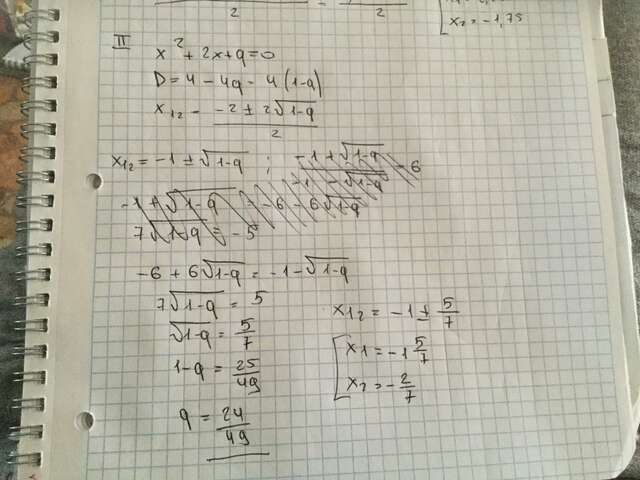 2
2
x₂ = -1,75
II
x² + 2x + q = 0
D = 4 - 4q = 4(1-q)
x₁₂ = (-2 ± 2√(1-q))/2
x₁₂ = -1 ± √(1-q) ; (-1 + √(1-q))/(-1 - √(1-q)) = 6
-1 + √(1-q) = -6 - 6√(1-q)
7√(1-q) = -5
-6 + 6√(1-q) = -1 - √(1-q)
7√(1-q) = 5
√(1-q) = 5/7
1-q = 25/49
q = 24/49
x₁₂ = -1 ± 5/7
x₁ = -1 5/7
x₂ = -2/7